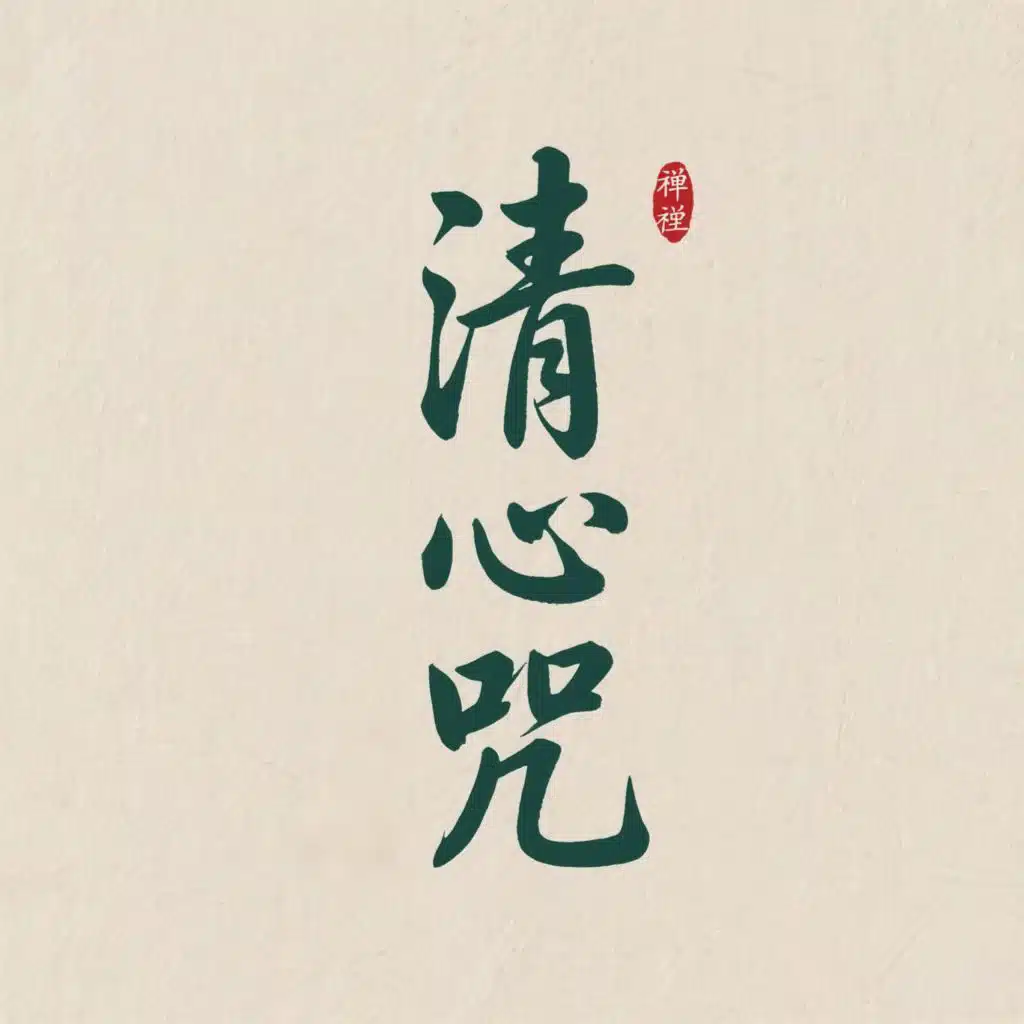 清心咒
禅